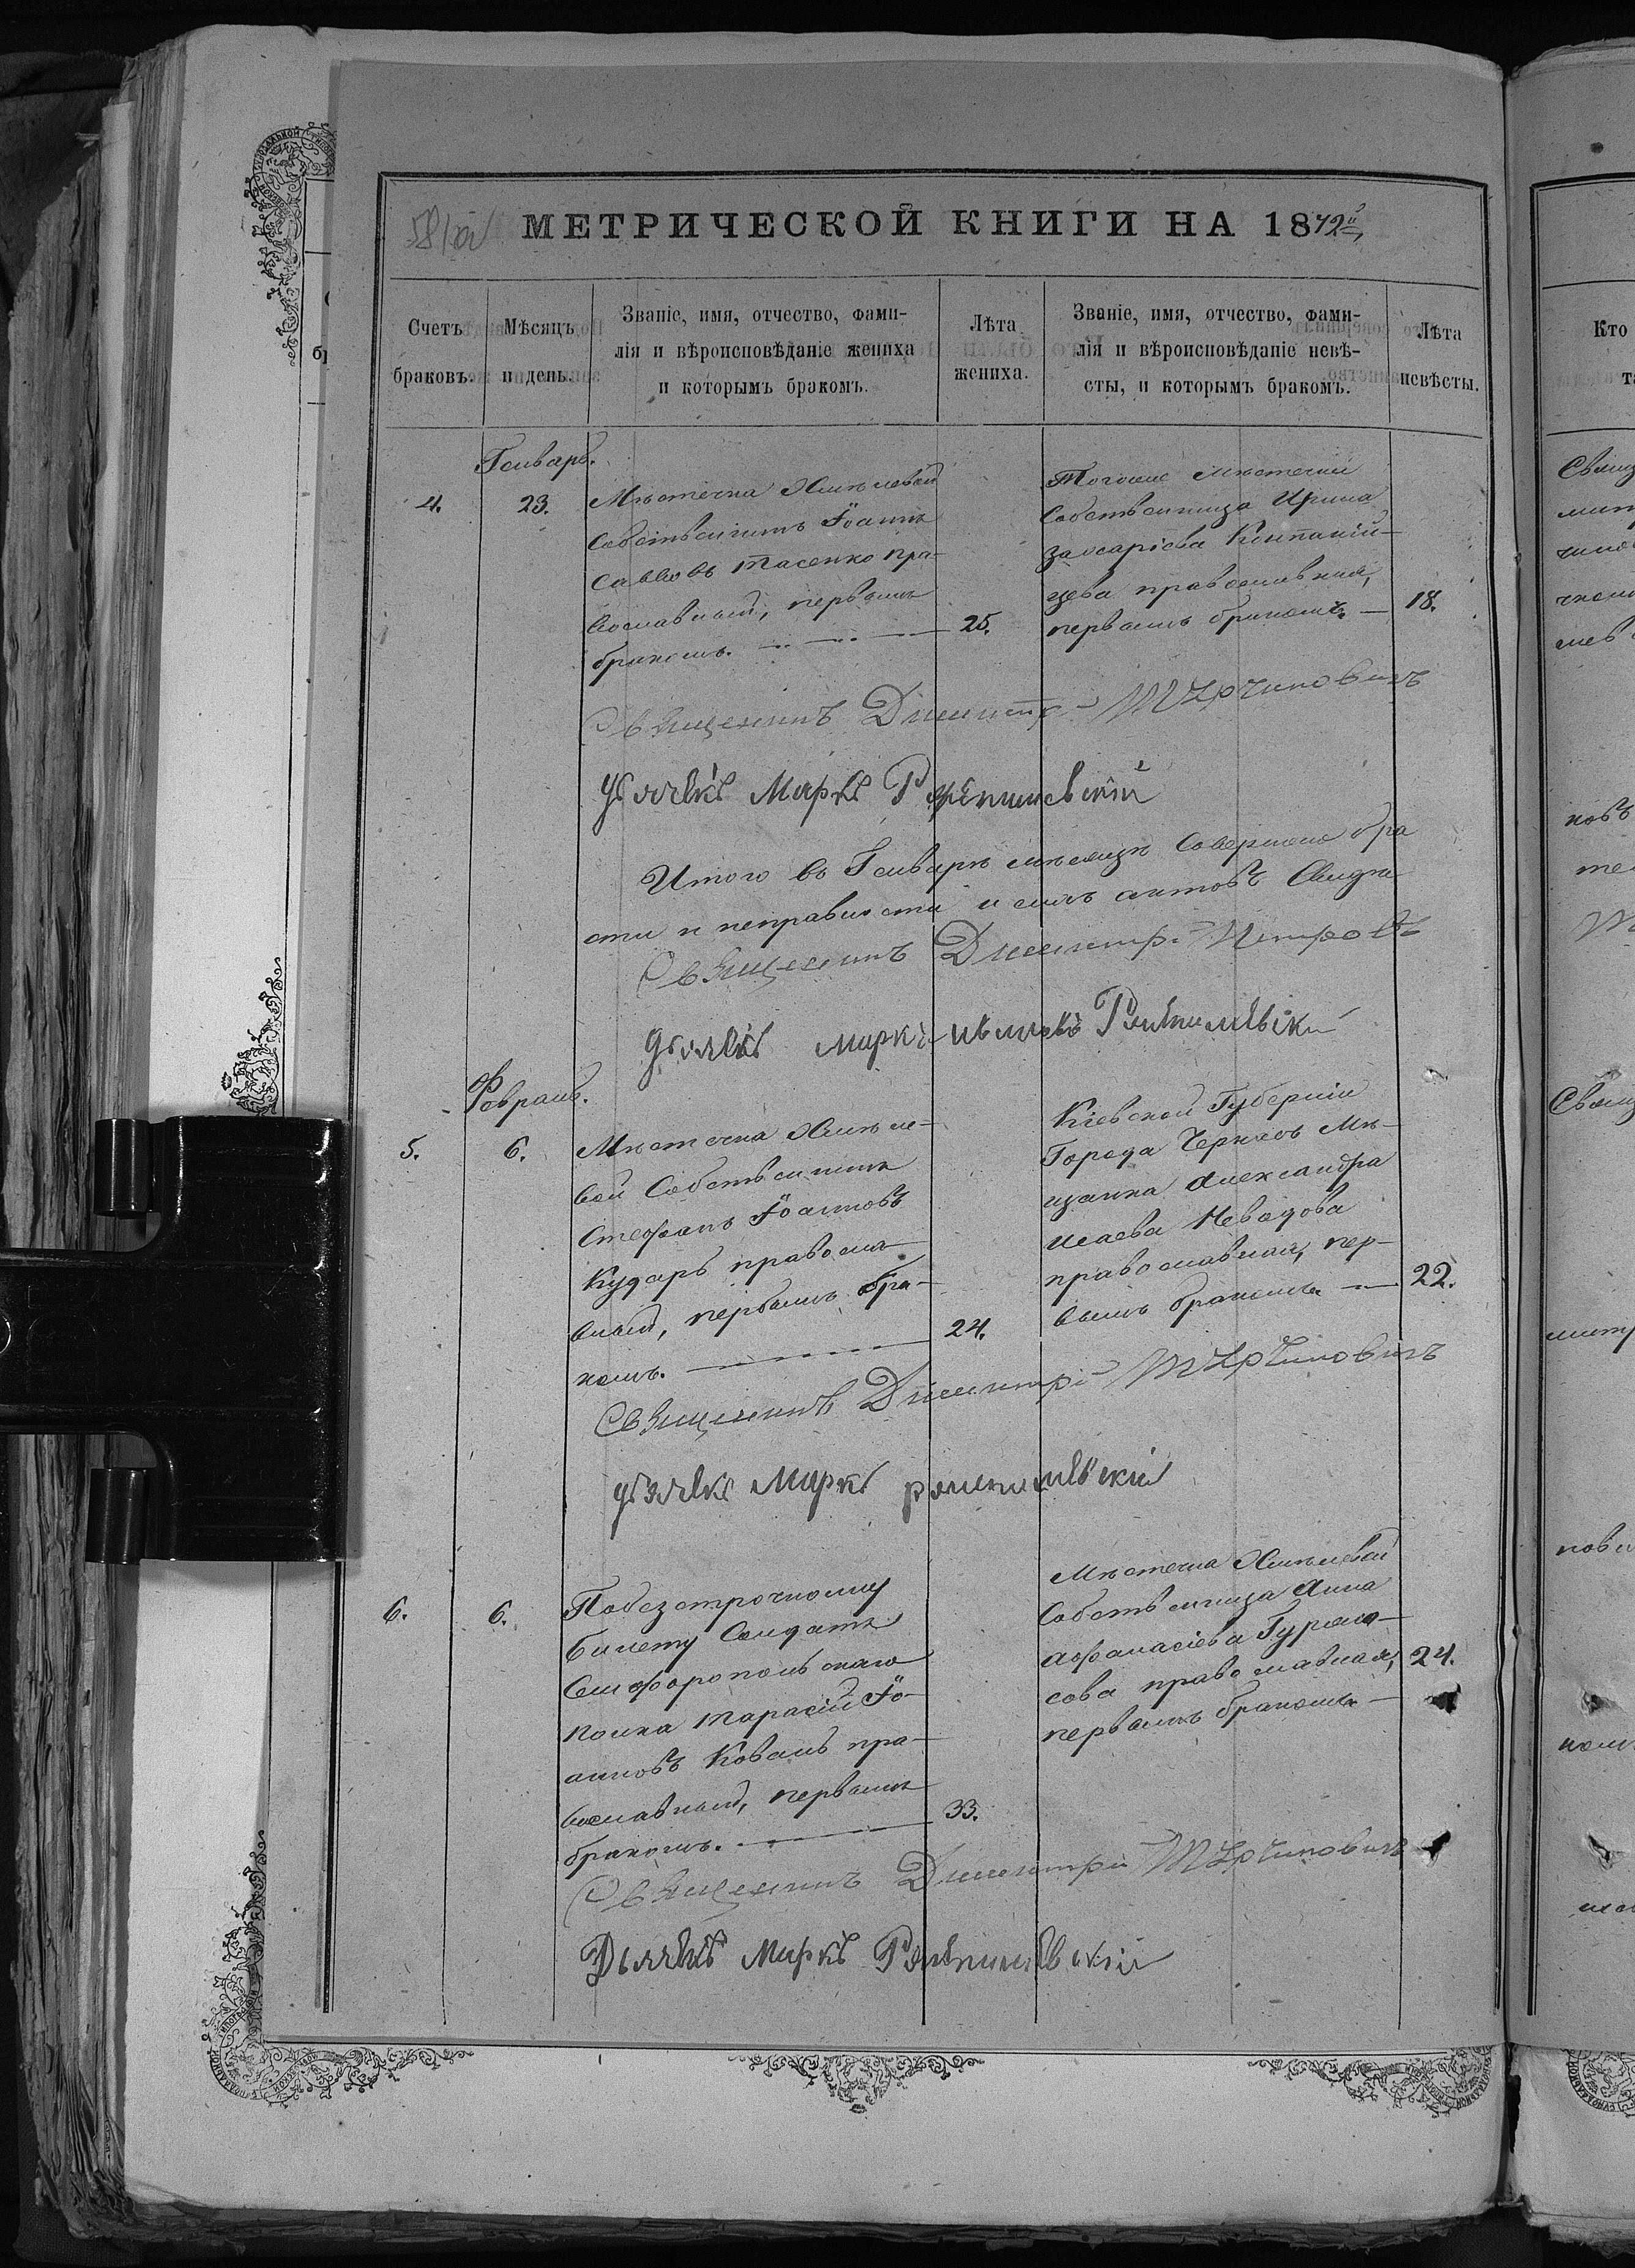 МЕТРИЧЕСКОЙ КНИГИ НА 1872й
Счетъ браковъ.
Мѣсяцъ и день.
Званіе, имя, отчество, фами-
лія и вѣроисповѣданіе жениха
и которымъ бракомъ.
Лѣта
жениха.
Званіе, имя, отчество, фами-
лія и вѣроисповѣданіе невѣ-
сты, и которымъ бракомъ.
Лѣта
невѣсты.
Генварь.
4.
23.
Мѣстечка Хмѣлевой
Собственникъ Іоаннъ
Саввовъ Тасенко пра-
вославный, первымъ
бракомъ.
25.
Тогоже мѣстечка
Собственница Ирина
Захаріева Компаній-
цева православная,
первымъ бракомъ.
18.
Священникъ Димитрій
Дьячекъ Маркъ
Итого въ Генварѣ мѣсяцѣ Совершено бра
сти и неправности и сихъ актовъ Свидѣ
Священникъ Димитрій
Дьячекъ Маркъ
Февраль.
5.
6.
Мѣстечка Хмѣле-
вой Собственникъ
Стефанъ Іоанновъ
Кударь православ
вный, первымъ бра-
комъ.
24.
Кіевской Губерніи
Города Черкасъ Мѣ-
щанка Александра
Исаева Невадова
православная, пер-
вымъ бракомъ
22.
Священникъ Димитрій
Дьячекъ Маркъ
6.
6.
Побезсрочному
билету Солдатъ
Симферопольскаго
полка Тарасій Іо-
анновъ Коваль пра-
вославный, первымъ
бракомъ.
33.
Мѣстечка Хмѣлевой
Собственница Анна
Афанасіева
сова православная,
первымъ бракомъ
24.
Священникъ Димитрій
Дьячекъ Маркъ